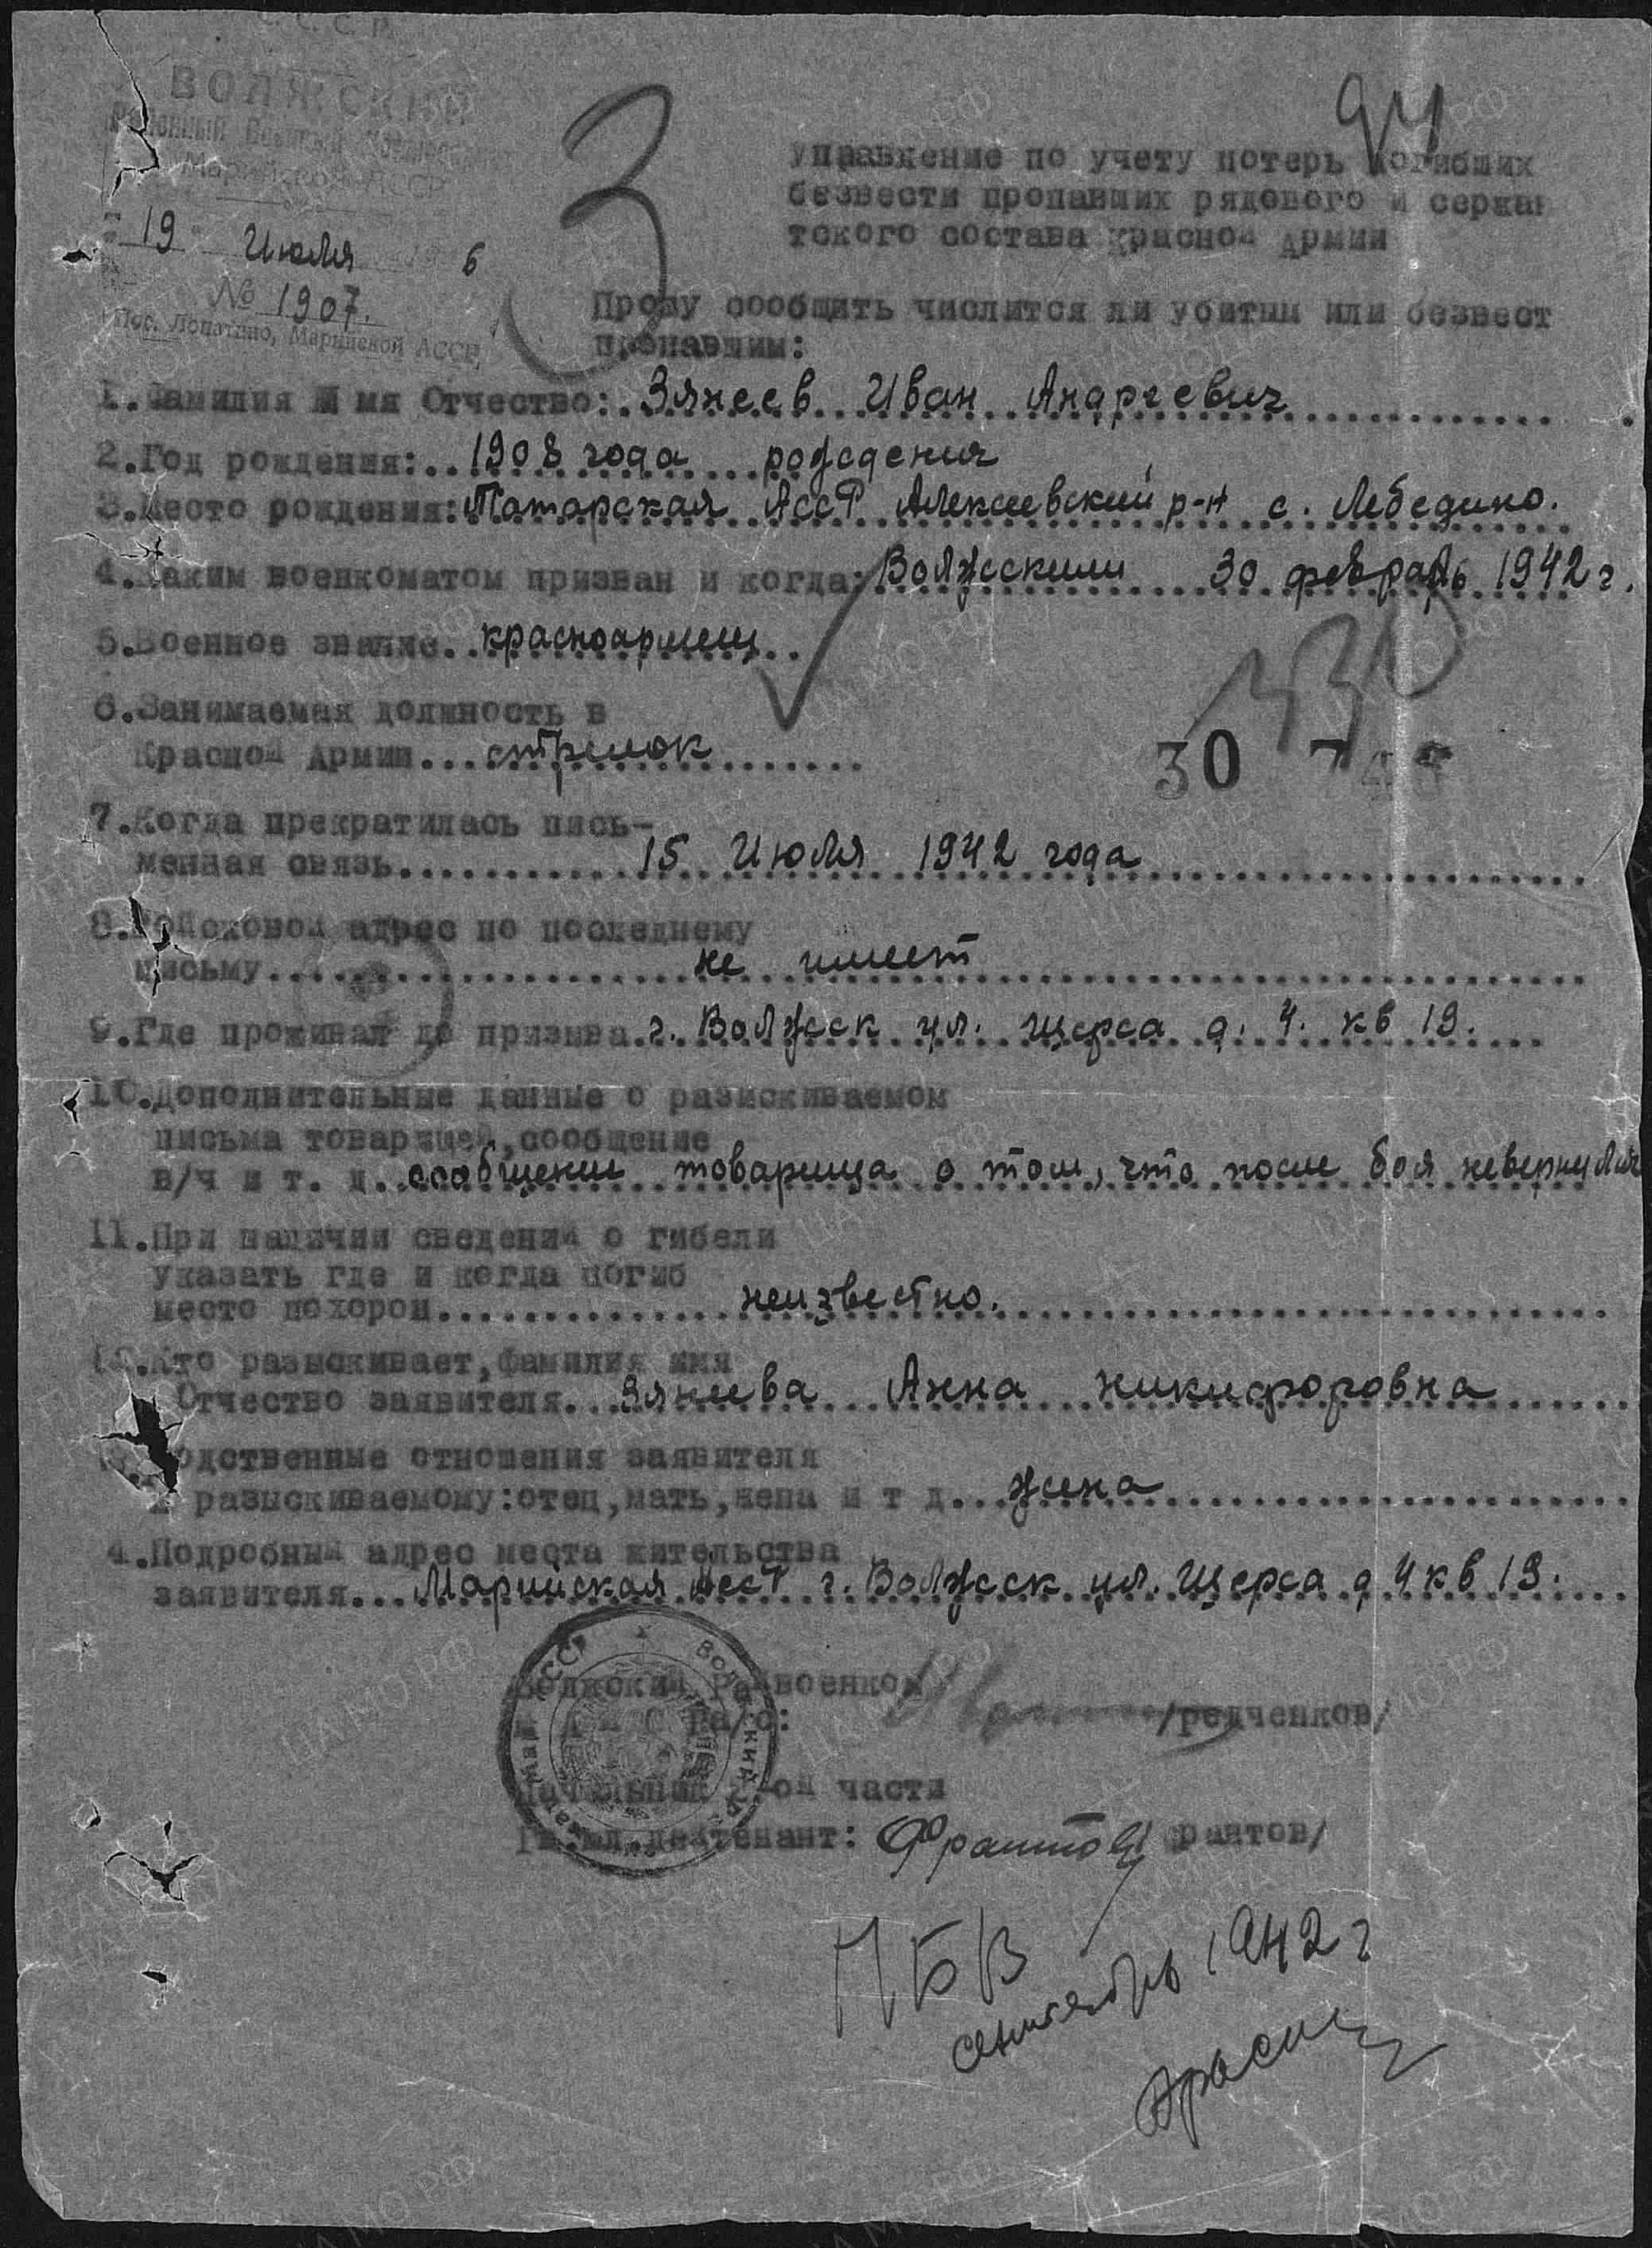 С С С Р
ВОЛЖСКИЙ
Районный Военный
Марийской АССР
94
3
Управление по учету потерь погибших
безвести пропавших рядового и сержан
тского состава Красной Армии
"19" Июля 6
№ 1907.
Пос. Лопатино, Марийской АССР
Прошу сообщить числится ли убитым или безвест
пропавшим:
1. Фамилия И мя Отчество: Зянеев Иван Андреевич
2. Год рождения: 1908 года рождения
3. Место рождения: Татарская АссР Алексеевский р-н с. Лебедино.
4. Каким военкоматом призван и когда: Волжским 30 февраль 1942 г.
5. Военное звание красноармеец
6. Занимаемая должность в
Красной Армии стрелок
30
7. Когда прекратилась пись-
менная связь 15 Июля 1942 года
8. Войсковой адрес по последнему
письму не имеет
9. Где проживал до призыва г. Волжск ул. Щерса д. 4. кв 19.
10. Дополнительные данные о разыскиваемом
письма товарищей, сообщение
в/ч и т. д. сообщение товарища о том, что после боя невернулся
11. При наличии сведений о гибели
указать где и когда погиб
место похорон неизвестно.
12. Кто разыскивает, фамилия имя
Отчество заявителя Зянеева Анна никифоровна
Родственные отношения заявителя
к разыскиваемому: отец, мать, жена и т д жена
4. Подробный адрес места жительства
заявителя Марийская АссР г. Волжск ул. Щерса д 4 кв 19.
Волжский Райвоенком
/редченков/
Начальник 2-ой части
Гв. мл. лейтенант: Франтов /франтов/
ПБВ
сентябрь 1942 г